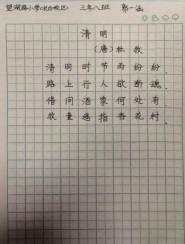 望湖路小学(水台校区) 三年八班 郭一涵
清明
(唐)杜牧
清明时节雨纷纷,
路上行人欲断魂。
借问酒家何处有,
牧童遥指杏花村。